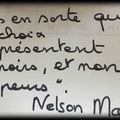 s en sorte que
choix
présentent
poirs, et non
peurs".
Nelson Ma